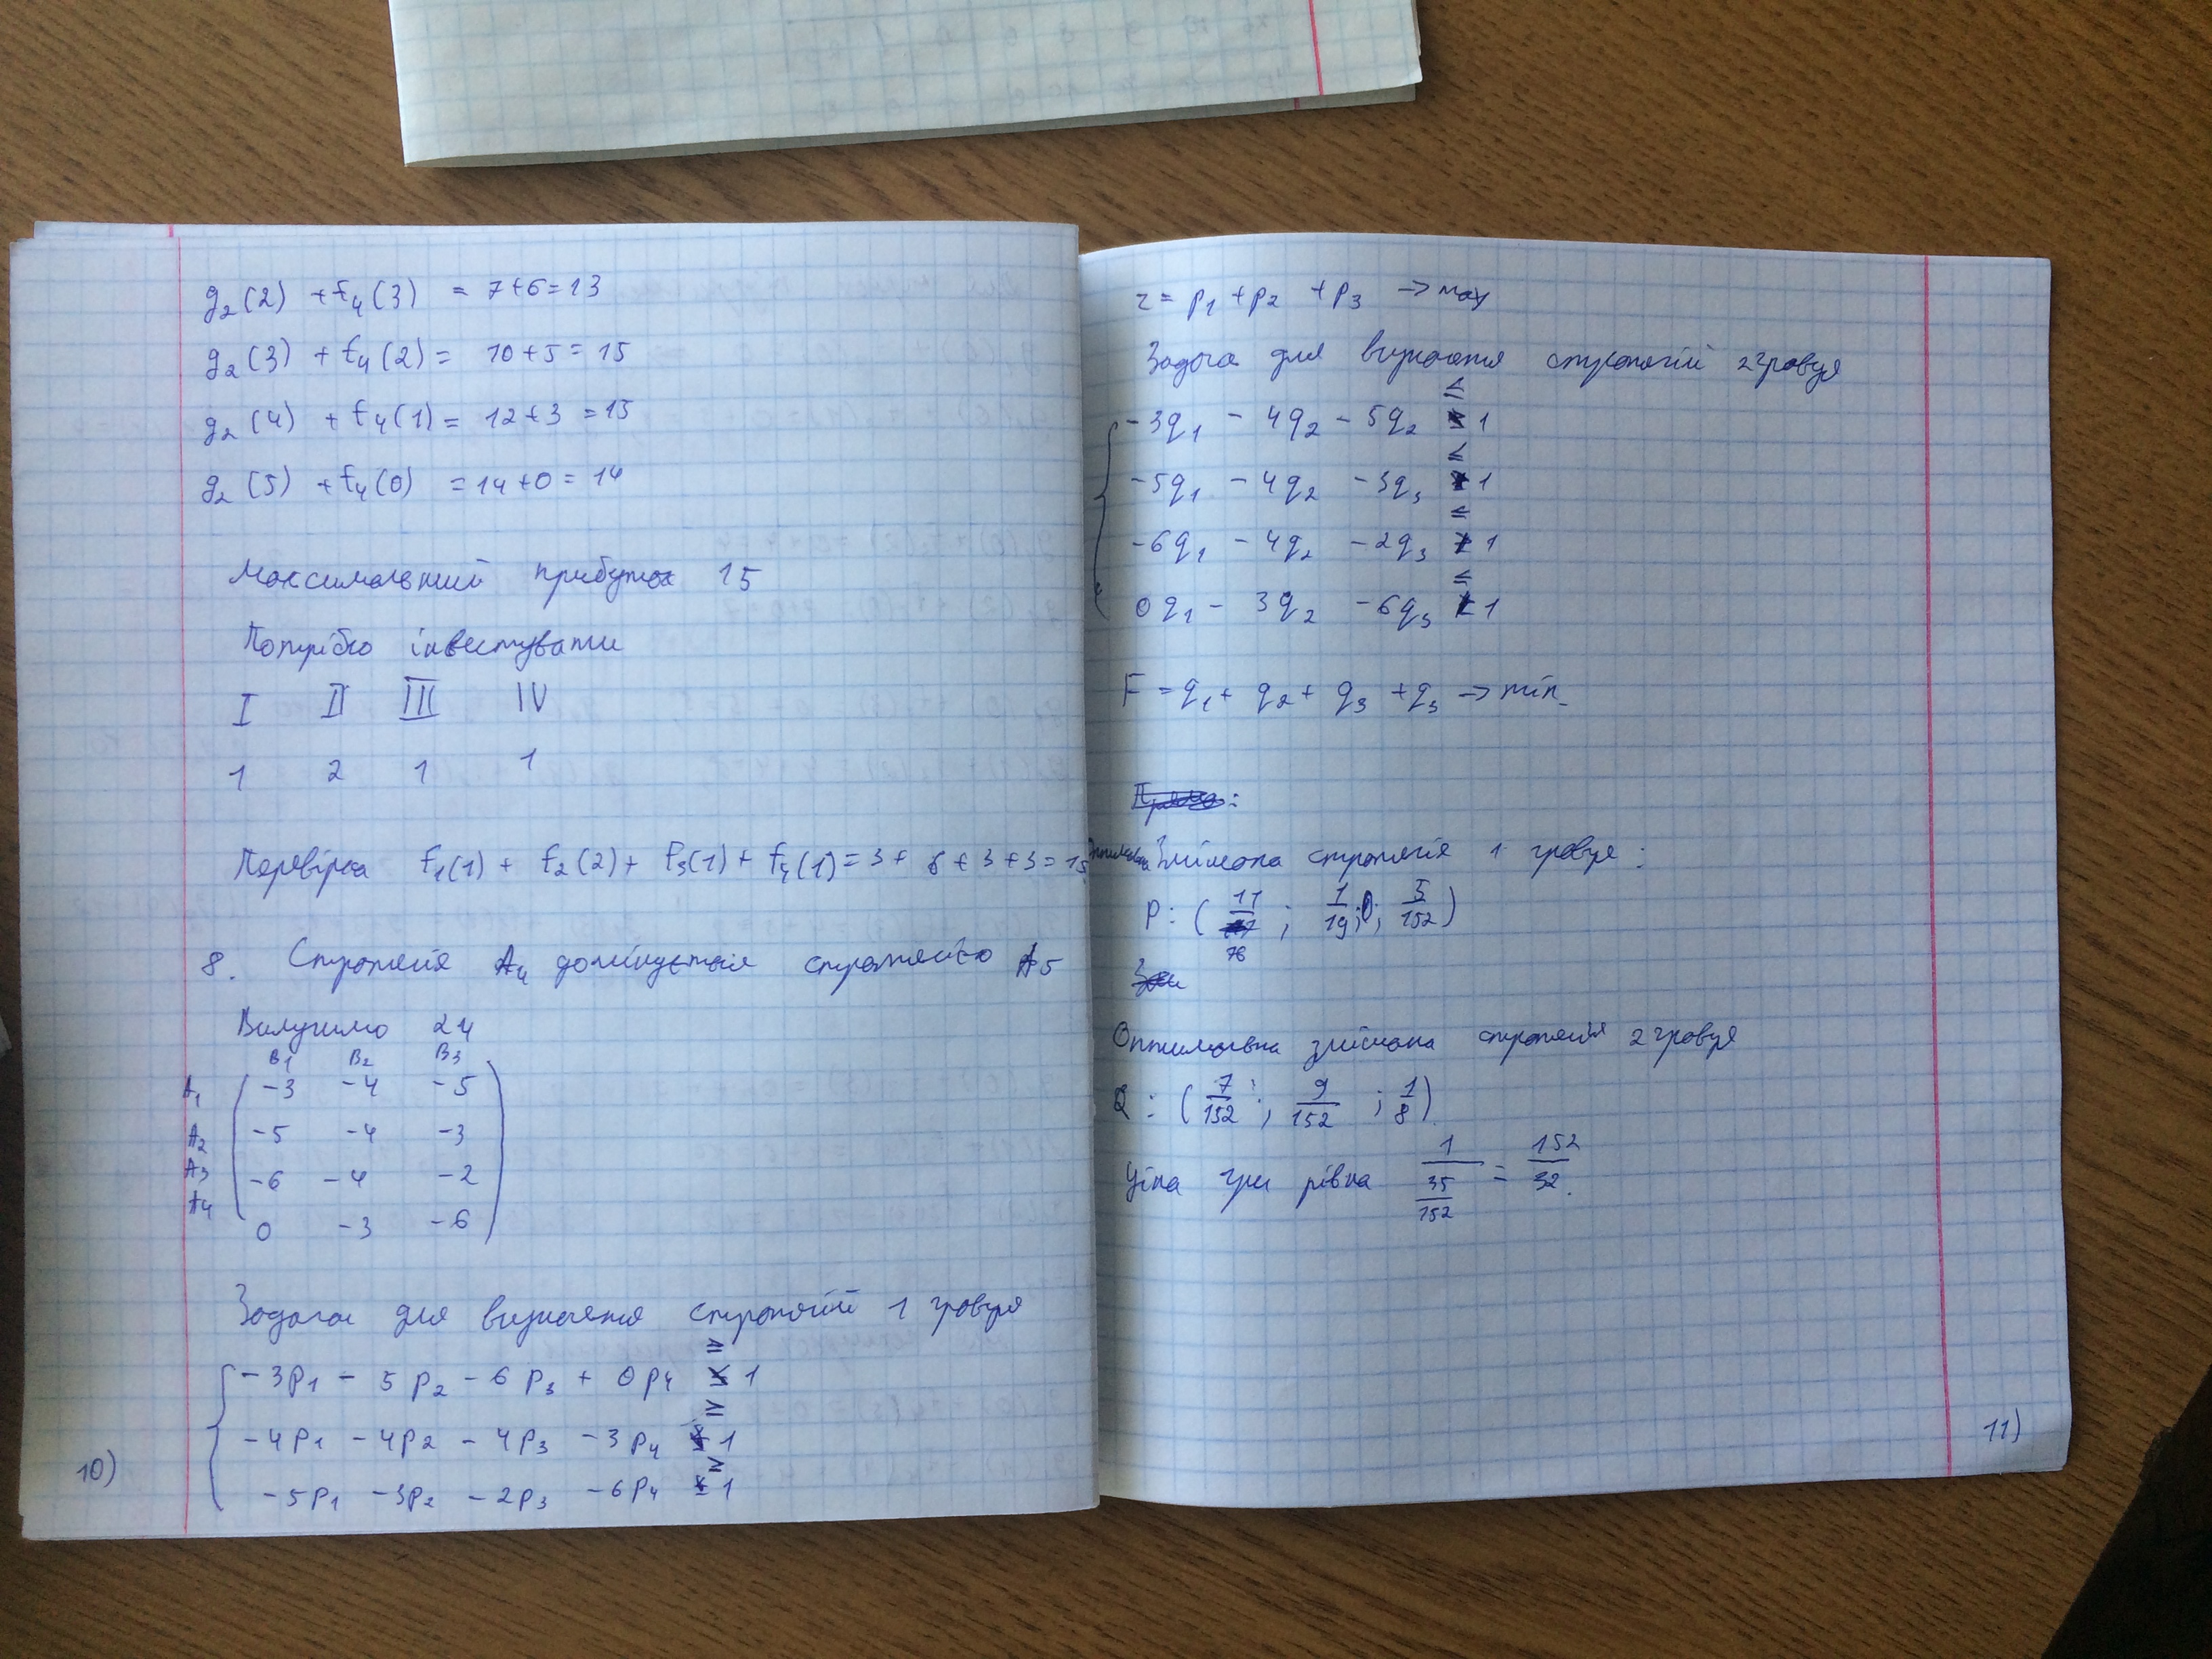 g₂(2) + f₄(3) = 7+6=13
g₂(3) + f₄(2) = 10+5=15
g₂(4) + f₄(1) = 12+3 =15
g₂(5) + f₄(0) = 14+0=14
Максимальний прибуток 15
Потрібно інвестувати
I II III IV
1 2 1 1
Перевірка f₁(1) + f₂(2) + f₃(1) + f₄(1) = 3 + 6 + 3 + 3 = 15
8. Стратегія A₄ домінується стратегією A5
Вилучимо 24
B₁ B₂ B₃
A₁ -3 -4 -5
A₂ -5 -4 -3
A₃ -6 -4 -2
A₄ 0 -3 -6
Задача для визначення стратегій 1 гравця
-3p₁ - 5p₂ - 6p₃ + 0p₄ ≥ 1
-4p₁ - 4p₂ - 4p₃ - 3p₄ ≥ 1
-5p₁ - 3p₂ - 2p₃ - 6p₄ ≥ 1
10)
z = p₁ + p₂ + p₃ → max
Задача для визначення стратегій 2 гравця
-3q₁ - 4q₂ - 5q₂ ≤ 1
-5q₁ - 4q₂ - 3q₃ ≤ 1
-6q₁ - 4q₂ - 2q₃ ≤ 1
0q₁ - 3q₂ - 6q₃ ≤ 1
F = q₁ + q₂ + q₃ + q₃ → min
Оптимальна Змішана стратегія 1 гравця :
P: (11/76 ; 1/19; 0; 5/152)
Оптимальна змішана стратегія 2 гравця
Q : (7/152 ; 9/152 ; 1/8)
Ціна гри рівна 1/(35/152) = 152/32.
11)